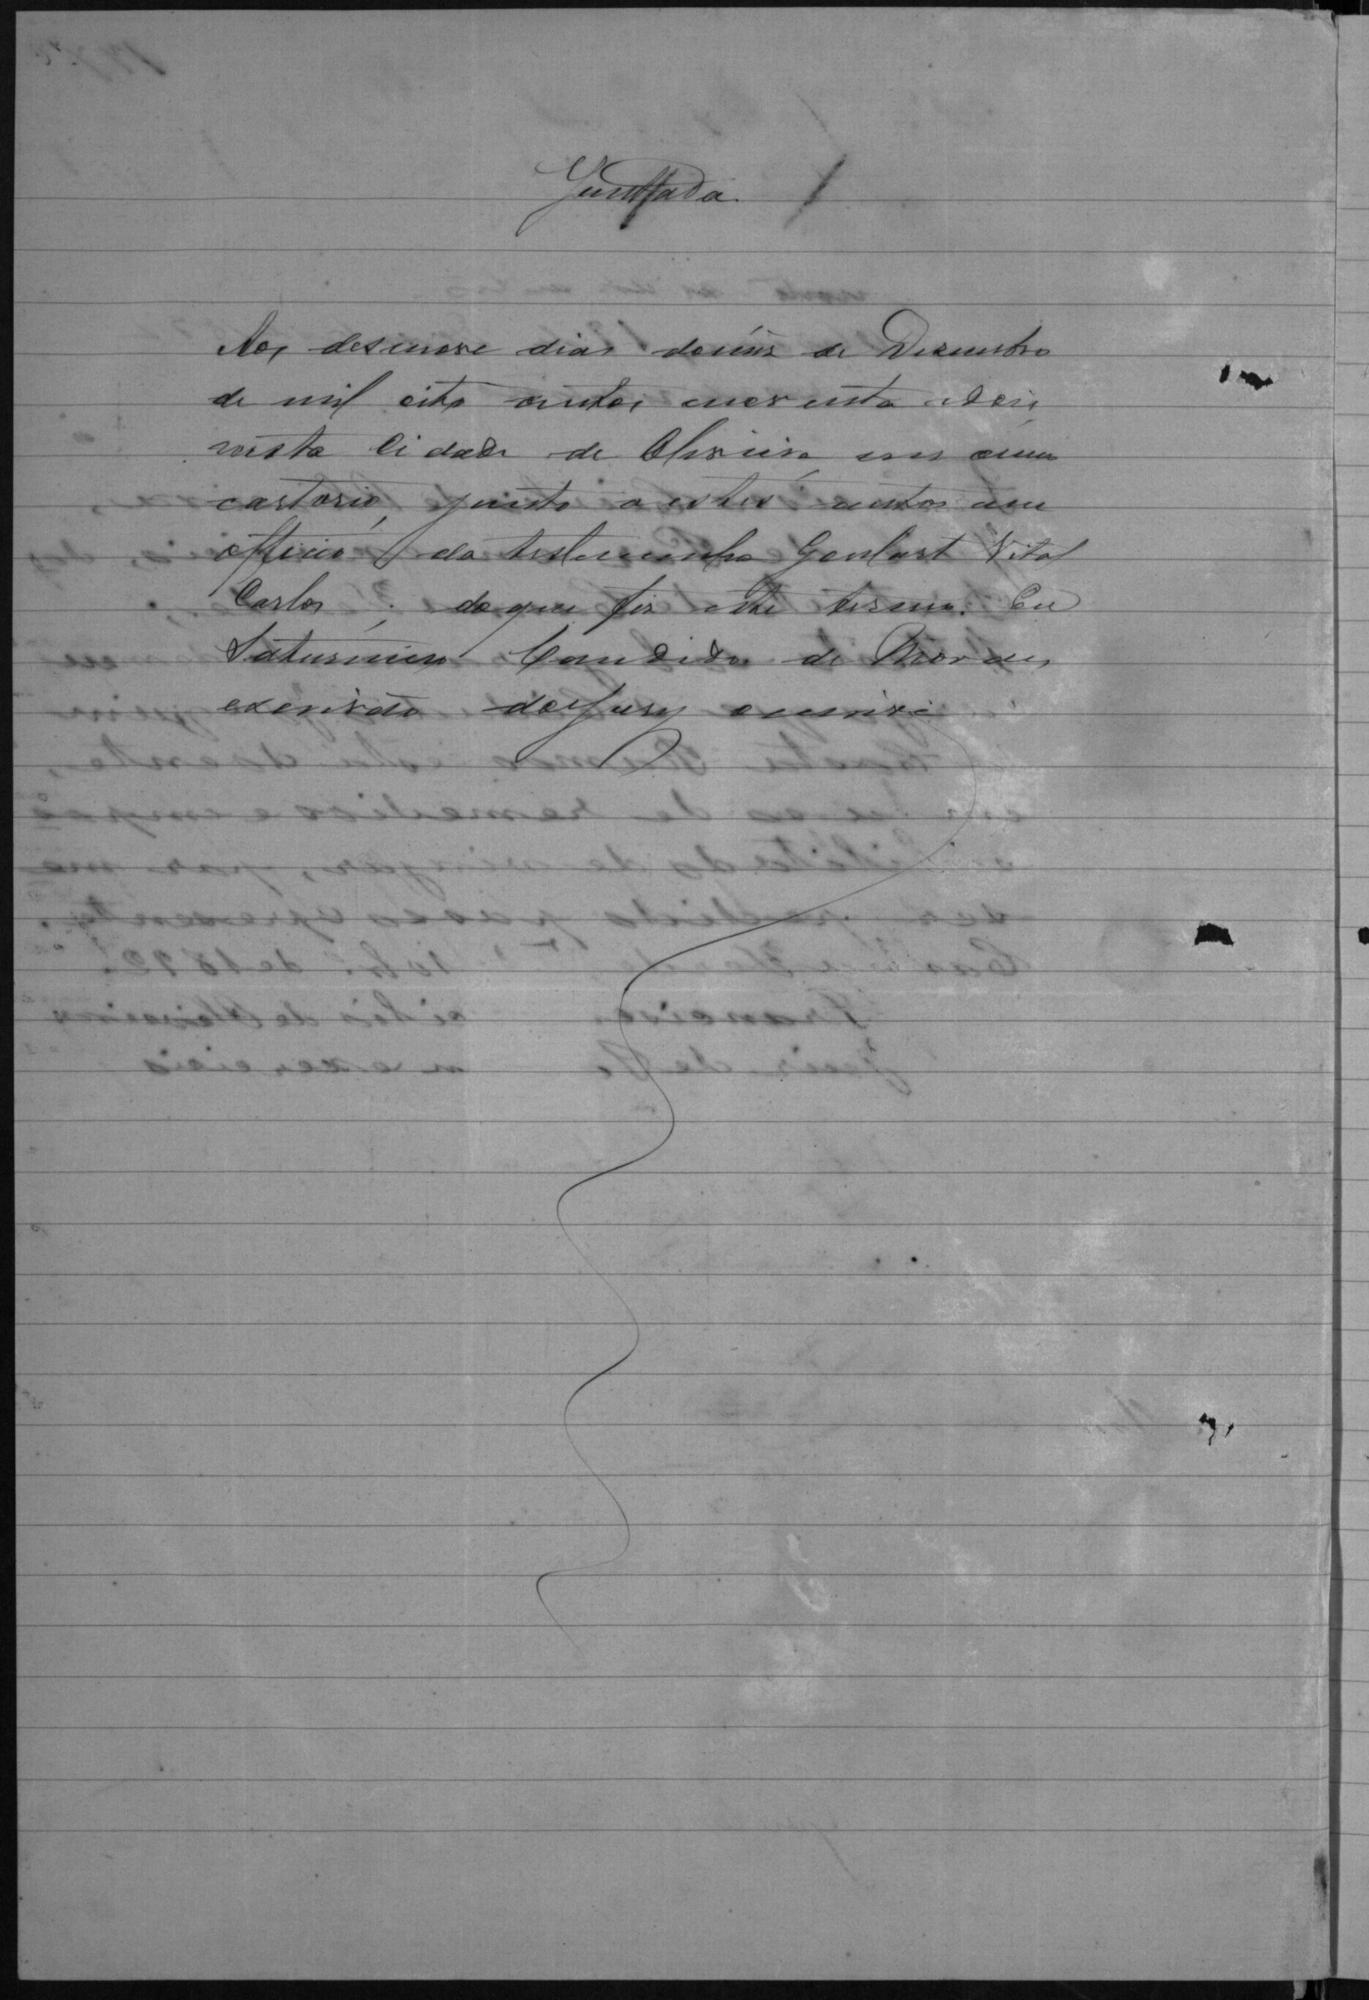 Junttada
Aos desenove dias do mês de Dezembro
de mil oito centos enoventa edois
nesta Cidade de Oliveira em meu
cartorio, junto a estes autos um
officio da testemunha Goulart Vital
Carlos; do que fiz este termo. Eu
Saturnino Candido de Moraes
escrivão do Jury escrivi